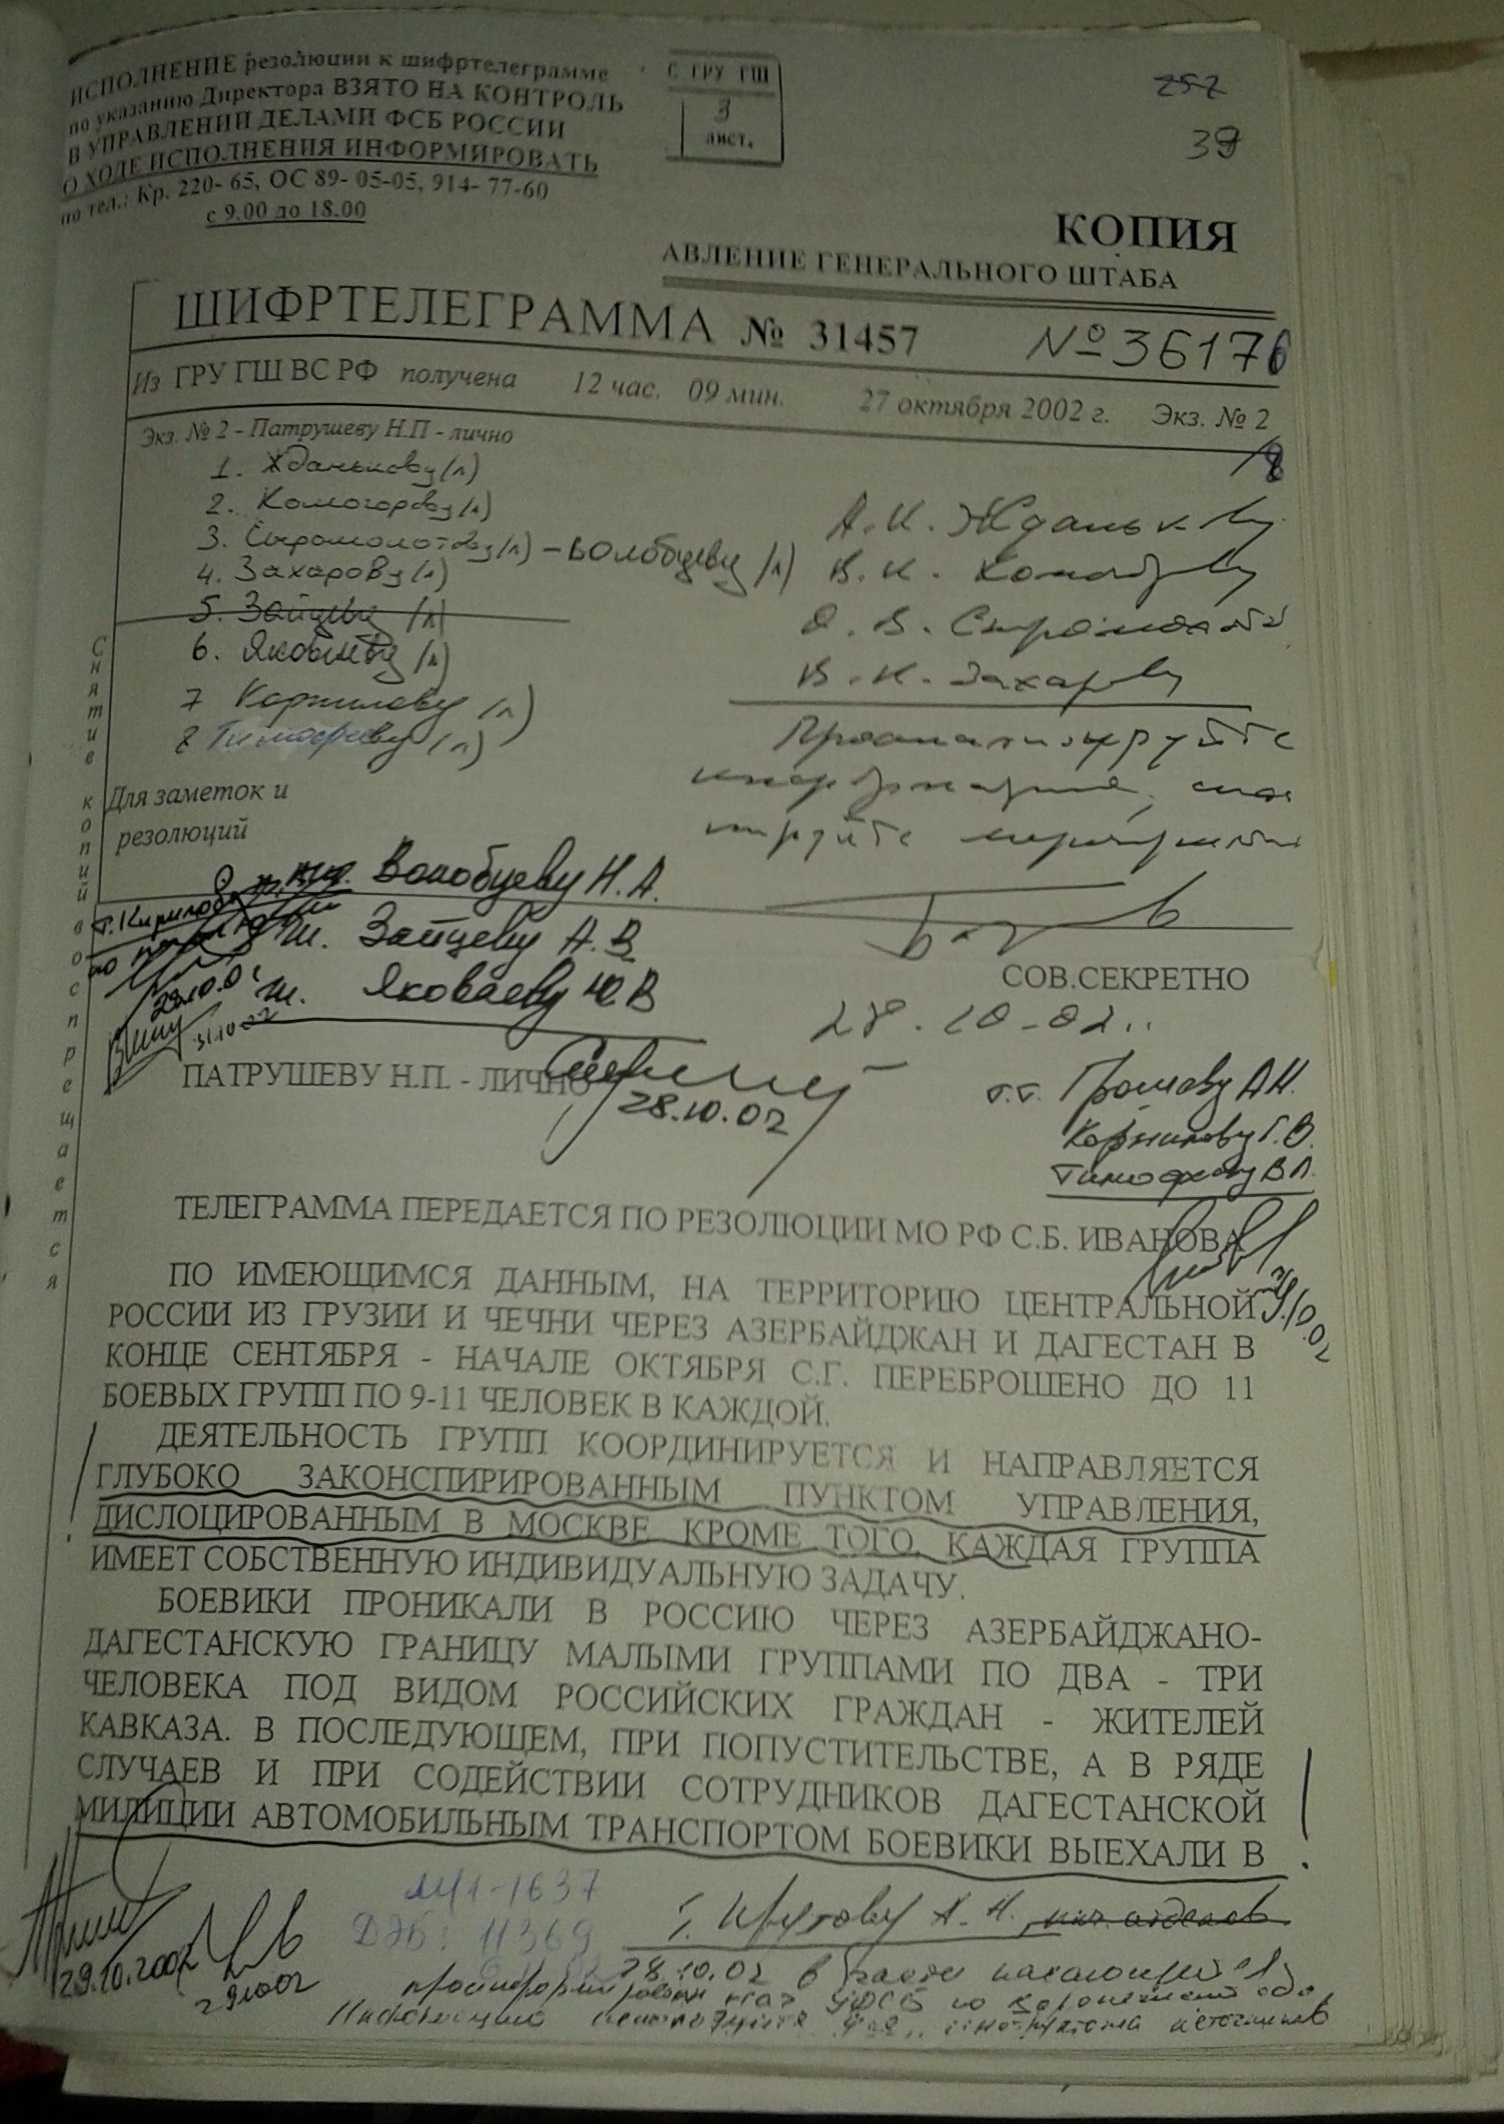 ИСПОЛНЕНИЕ резолюции к шифртелеграмме
по указанию Директора ВЗЯТО НА КОНТРОЛЬ
В УПРАВЛЕНИИ ДЕЛАМИ ФСБ РОССИИ
О ХОДЕ ИСПОЛНЕНИЯ ИНФОРМИРОВАТЬ
по тел.: Кр. 220- 65, ОС 89- 05-05, 914- 77-60
с 9.00 до 18.00
С ГРУ ГШ
3
лист.
257
39
КОПИЯ
АВЛЕНИЕ ГЕНЕРАЛЬНОГО ШТАБА
ШИФРТЕЛЕГРАММА № 31457 №36176
Из ГРУ ГШ ВС РФ получена 12 час. 09 мин. 27 октября 2002 г. Экз. № 2
Экз. № 2 - Патрушеву Н.П - лично
1. Жданькову (л)
2. Комогорову (л)
3. Сыромолотову (л) - Волобуеву (л)
4. Захарову (л)
5. Зайцеву (л)
6. Яковлеву (л)
7 Корнилову (л)
8 Тимофееву (л)
А.И. Жданькову
В.И. Комогорову
О.В. Сыромолотову
В.И. Захарову
Проанализируйте
информацию,
мероприятия
Снятие копий воспрещается
Для заметок и
резолюций
Волобуеву Н.А.
т. Зайцеву А.В
т. Яковлеву Ю.В
29.10.02
31.10.02
СОВ.СЕКРЕТНО
28.10.02..
ПАТРУШЕВУ Н.П. - ЛИЧНО
28.10.02
т.т. Громову А.Н.
Корнилову Г.В.
Тимофееву В.Л.
ТЕЛЕГРАММА ПЕРЕДАЕТСЯ ПО РЕЗОЛЮЦИИ МО РФ С.Б. ИВАНОВА
ПО ИМЕЮЩИМСЯ ДАННЫМ, НА ТЕРРИТОРИЮ ЦЕНТРАЛЬНОЙ
РОССИИ ИЗ ГРУЗИИ И ЧЕЧНИ ЧЕРЕЗ АЗЕРБАЙДЖАН И ДАГЕСТАН В
КОНЦЕ СЕНТЯБРЯ - НАЧАЛЕ ОКТЯБРЯ С.Г. ПЕРЕБРОШЕНО ДО 11
БОЕВЫХ ГРУПП ПО 9-11 ЧЕЛОВЕК В КАЖДОЙ.
ДЕЯТЕЛЬНОСТЬ ГРУПП КООРДИНИРУЕТСЯ И НАПРАВЛЯЕТСЯ
ГЛУБОКО ЗАКОНСПИРИРОВАННЫМ ПУНКТОМ УПРАВЛЕНИЯ,
ДИСЛОЦИРОВАННЫМ В МОСКВЕ. КРОМЕ ТОГО, КАЖДАЯ ГРУППА
ИМЕЕТ СОБСТВЕННУЮ ИНДИВИДУАЛЬНУЮ ЗАДАЧУ.
БОЕВИКИ ПРОНИКАЛИ В РОССИЮ ЧЕРЕЗ АЗЕРБАЙДЖАНО-
ДАГЕСТАНСКУЮ ГРАНИЦУ МАЛЫМИ ГРУППАМИ ПО ДВА - ТРИ
ЧЕЛОВЕКА ПОД ВИДОМ РОССИЙСКИХ ГРАЖДАН - ЖИТЕЛЕЙ
КАВКАЗА. В ПОСЛЕДУЮЩЕМ, ПРИ ПОПУСТИТЕЛЬСТВЕ, А В РЯДЕ
СЛУЧАЕВ И ПРИ СОДЕЙСТВИИ СОТРУДНИКОВ ДАГЕСТАНСКОЙ
МИЛИЦИИ АВТОМОБИЛЬНЫМ ТРАНСПОРТОМ БОЕВИКИ ВЫЕХАЛИ В
29.10.2002
291002
1-1637
ДЭБ: 11369
А.Н., нач. отделов
28.10.02 в части касающейся
проинформирован нач УФСБ по Воронежской обл.